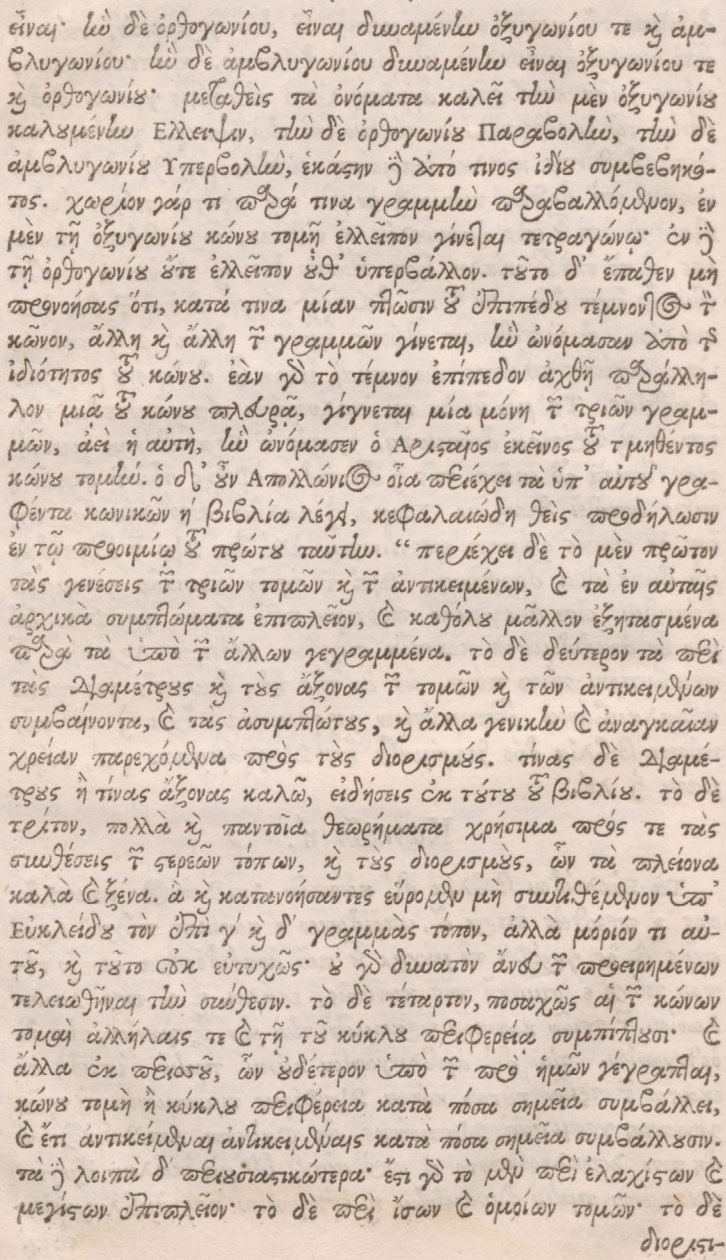 εἶναι· ἣν δὲ ὀρθογωνίου, εἶναι δυναμένην ὀξυγωνίου τε καὶ ἀμ-
βλυγωνίου· ἣν δὲ ἀμβλυγωνίου δυναμένην εἶναι ὀξυγωνίου τε
καὶ ὀρθογωνίου· μεταθεὶς τὰ ὀνόματα καλεῖ τὴν μὲν ὀξυγωνίου
καλουμένην Ελλειψιν, τὴν δὲ ὀρθογωνίου Παραβολὴν, τὴν δὲ
ἀμβλυγωνίου Υπερβολὴν, ἑκάστην δὲ ἀπό τινος ἰδίου συμβεβηκό-
τος. χωρίον γάρ τι παρά τινα γραμμὴν παραβαλλόμενον, ἐν
μὲν τῇ ὀξυγωνίου κώνου τομῇ ἐλλεῖπον γίνεται τετραγώνῳ· ἐν δὲ
τῇ ὀρθογωνίου οὔτε ἐλλεῖπον οὐθ' ὑπερβάλλον. τοῦτο δ' ἔπαθεν μὴ
προνοήσας ὅτι, κατά τινα μίαν πτῶσιν τοῦ ἐπιπέδου τέμνοντος τὸν
κῶνον, ἄλλη καὶ ἄλλη τῶν γραμμῶν γίνεται, ἣν ὠνόμασαν ἀπὸ τῆς
ἰδιότητος τοῦ κώνου. ἐὰν γὰρ τὸ τέμνον ἐπιπεδον ἀχθῇ παράλλη-
λον μιᾷ τοῦ κώνου πλευρᾷ, γίγνεται μία μόνη τῶν τριῶν γραμ-
μῶν, ἀεὶ ἡ αὐτὴ, ἣν ὠνόμασεν ὁ Αρισταῖος ἐκεῖνος τοῦ τμηθέντος
κώνου τομήν. ὁ δ' οὖν Απολλώνιος οἷα περιέχει τὰ ὑπ' αὐτοῦ γρα-
φέντα κωνικῶν ή βιβλία λέγει, κεφαλαιώδη θεὶς προδήλωσιν
ἐν τῷ προοιμίῳ τοῦ πρώτου ταύτην. “περιέχει δὲ τὸ μὲν πρῶτον
τὰς γενέσεις τῶν τριῶν τομῶν καὶ τῶν ἀντικειμένων, καὶ τὰ ἐν αὐταῖς
ἀρχικὰ συμπτώματα ἐπιπλεῖον, καὶ καθόλου μᾶλλον ἐξητασμένα
παρὰ τὰ ὑπὸ τῶν ἄλλων γεγραμμένα. τὸ δὲ δεύτερον τὰ περὶ
τὰς διαμέτρους καὶ τοὺς ἄξονας τῶν τομῶν καὶ τῶν ἀντικειμένων
συμβαίνοντα, καὶ τὰς ἀσυμπτώτους, καὶ ἄλλα γενικὴν καὶ ἀναγκαῖαν
χρείαν παρεχόμενα πρὸς τοὺς διορισμούς. τίνας δὲ διαμέ-
τρους ἢ τίνας ἄξονας καλῶ, εἰδήσεις ἐκ τούτου τοῦ βιβλίου. τὸ δὲ
τρίτον, πολλὰ καὶ παντοῖα θεωρήματα χρήσιμα πρός τε τὰς
συνθέσεις τῶν στερεῶν τόπων, καὶ τοὺς διορισμοὺς, ὧν τὰ πλείονα
καλὰ καὶ ξένα. ἃ καὶ κατανοήσαντες εὕρομεν μὴ συντιθέμενον ὑπ'
Εὐκλείδου τὸν ἐπὶ γ' καὶ δ' γραμμὰς τόπον, ἀλλὰ μόριόν τι αὐ-
τοῦ, καὶ τοῦτο οὐκ εὐτυχῶς· οὐ γὰρ δυνατὸν ἄνευ τῶν προειρημένων
τελειωθῆναι τὴν σύνθεσιν. τὸ δὲ τέταρτον, ποσαχῶς αἱ τῶν κώνων
τομαὶ ἀλλήλαις τε καὶ τῇ τοῦ κύκλου περιφερείᾳ συμπίπτουσι· καὶ
ἄλλα ἐκ περισσοῦ, ὧν οὐδέτερον ὑπὸ τῶν πρὸ ἡμῶν γέγραπται,
κώνου τομὴ ἢ κύκλου περιφέρεια κατὰ πόσα σημεῖα συμβάλλει,
καὶ ἔτι ἀντικείμεναι ἀντικειμέναις κατὰ πόσα σημεῖα συμβάλλουσιν.
τὰ δὲ λοιπὰ δ' περιουσιαστικώτερα· ἔστι γὰρ τὸ μὲν περὶ ἐλαχίστων καὶ
μεγίστων ἐπιπλεῖον· τὸ δὲ περὶ ἴσων καὶ ὁμοίων τομῶν· τὸ δὲ
διορισι-